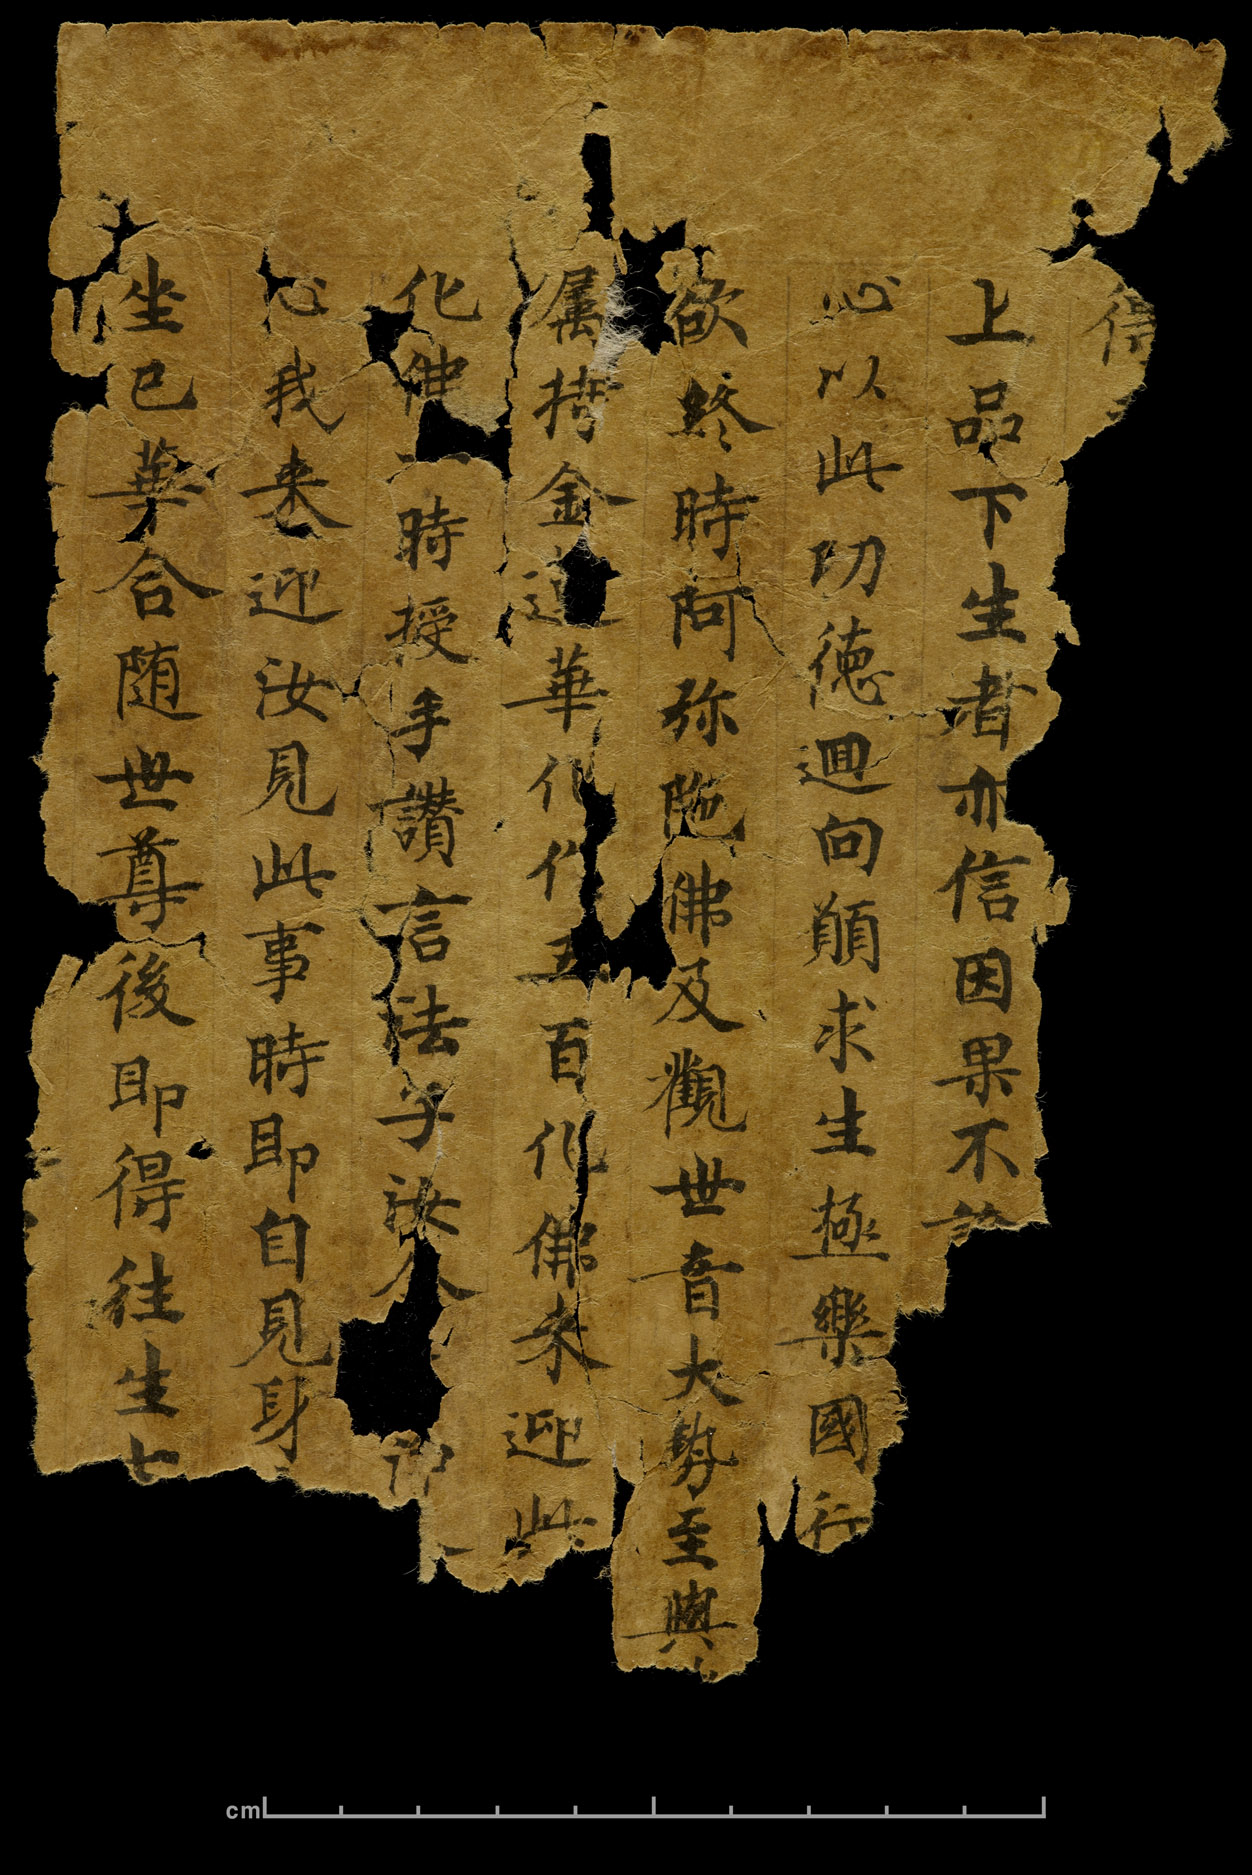 得
上品下生者亦信因果不謗
心以此功德迴向願求生極樂國行
欲終時阿弥陁佛及觀世音大勢至與
属持金蓮華化作五百化佛来迎此
化佛一時授手讃言法子汝今
心我来迎汝見此事時即自見身
坐已華合随世尊後即得往生七
cm